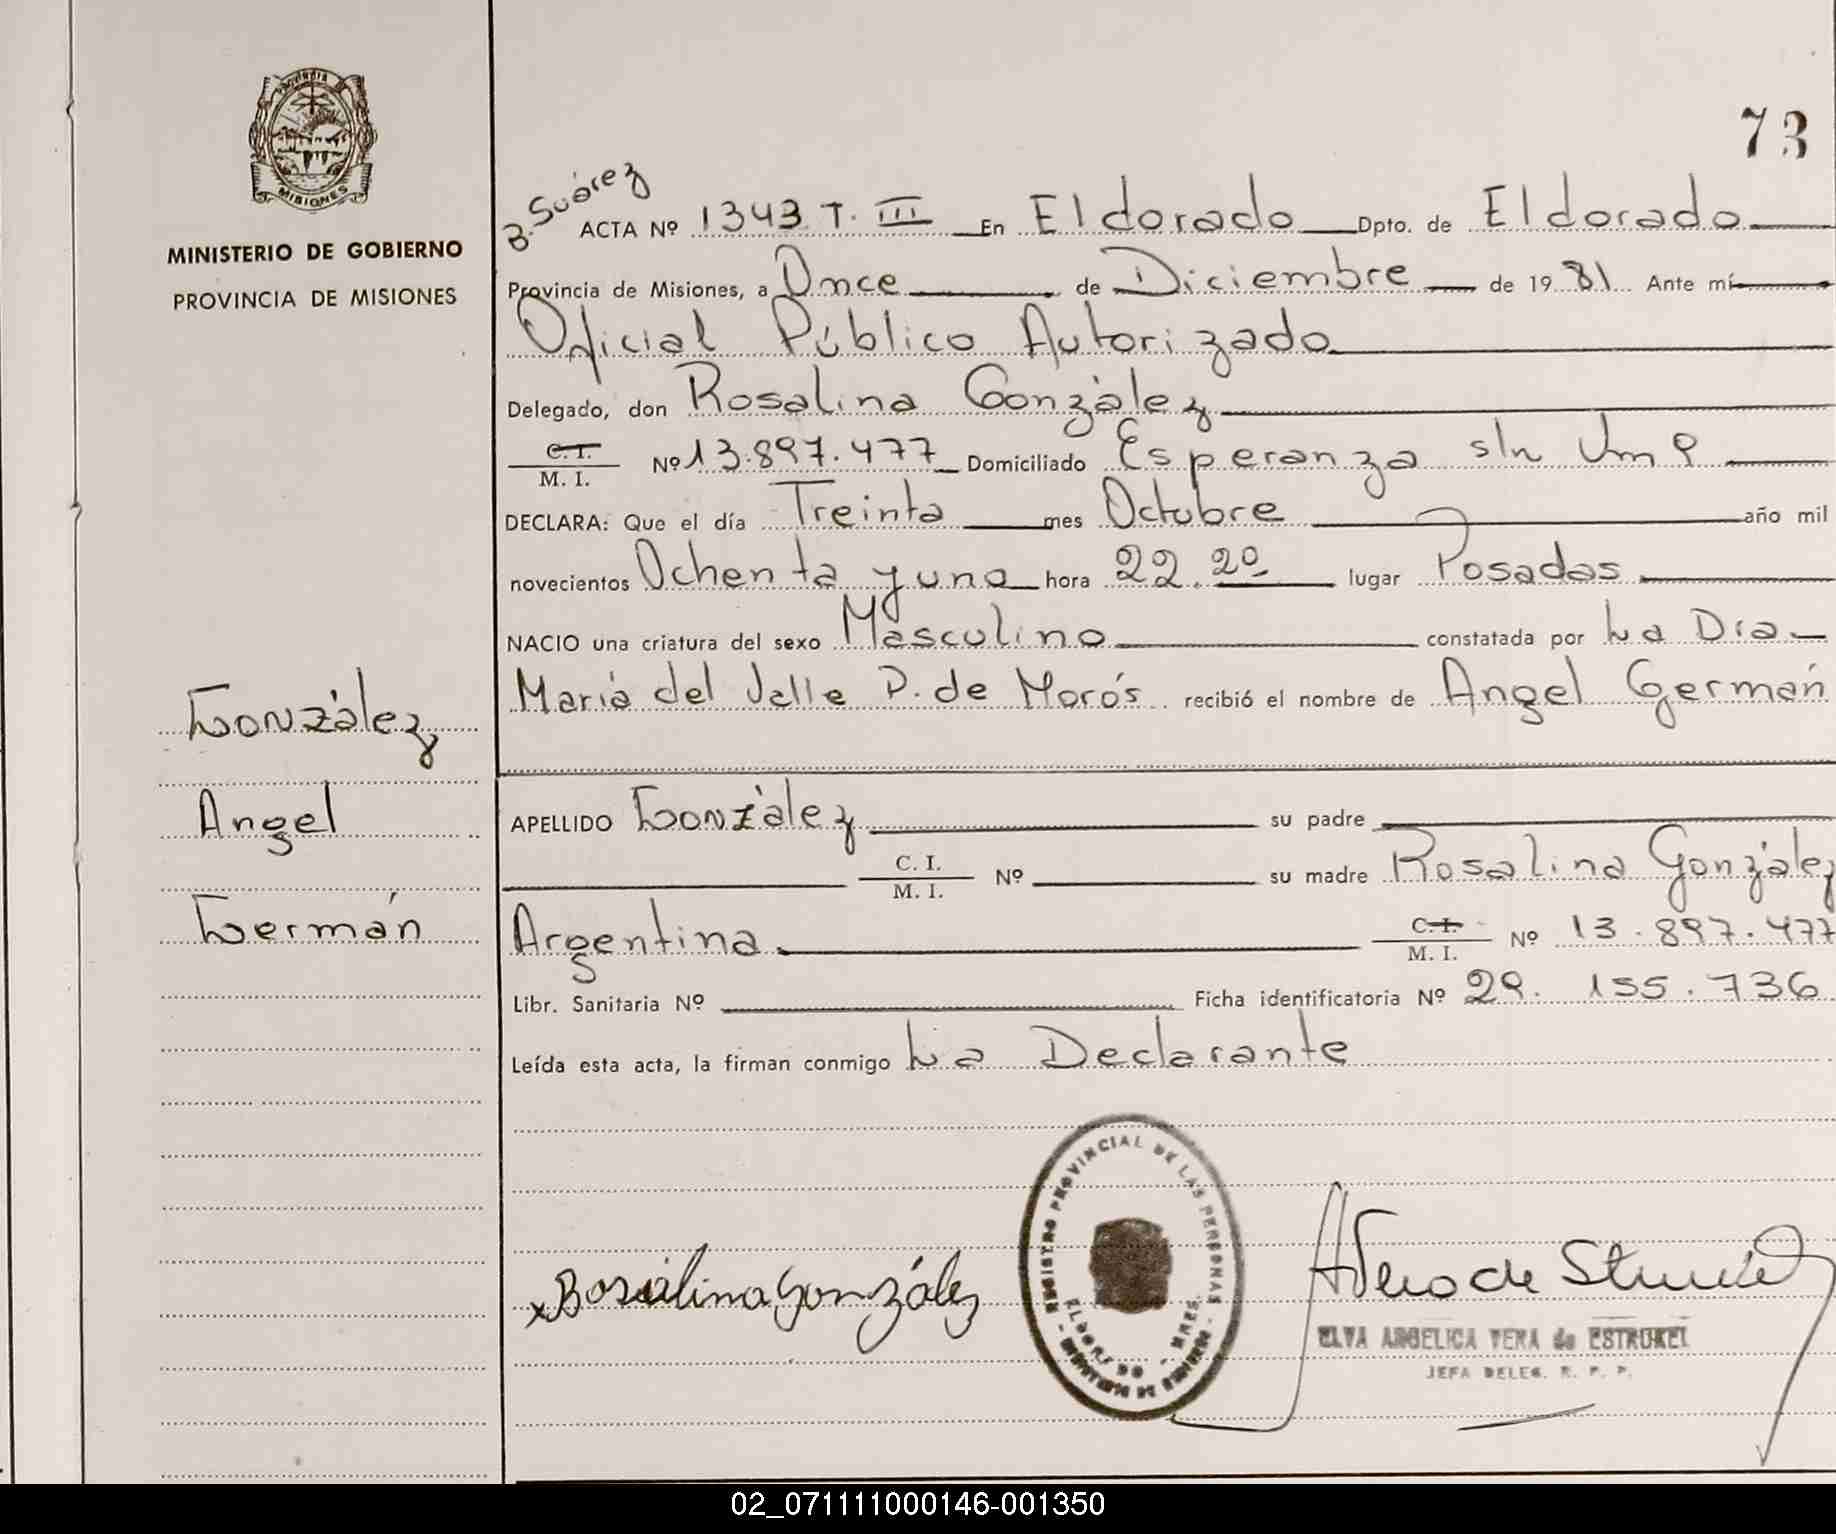 73
B. Suárez
ACTA Nº 1343 T. III En Eldorado Dpto. de Eldorado
MINISTERIO DE GOBIERNO
PROVINCIA DE MISIONES
Provincia de Misiones, a Once de Diciembre de 1981 Ante mí
Oficial Público Autorizado
Delegado, don Rosalina González
C. I. / M. I. Nº 13.897.477 Domiciliado Esperanza s/n
DECLARA: Que el día Treinta mes Octubre año mil
novecientos Ochenta y uno hora 22.20 lugar Posadas
NACIO una criatura del sexo Masculino constatada por La Dra
María del Valle P. de Morós recibió el nombre de Angel Germán
González
Angel
Germán
APELLIDO González su padre
C. I. / M. I. Nº su madre Rosalina González
Argentina C. I. / M. I. Nº 13.897.477
Libr. Sanitaria Nº Ficha identificatoria Nº 29.155.736
Leída esta acta, la firman conmigo La Declarante
x Rosalina González
REGISTRO PROVINCIAL DE LAS PERSONAS
ELDORADO - MNES.
MINISTERIO DE GOBIERNO
ELVA ANGELICA VERA de ESTRUKEL
JEFA DELEG. R. P. P.
02_071111000146-001350